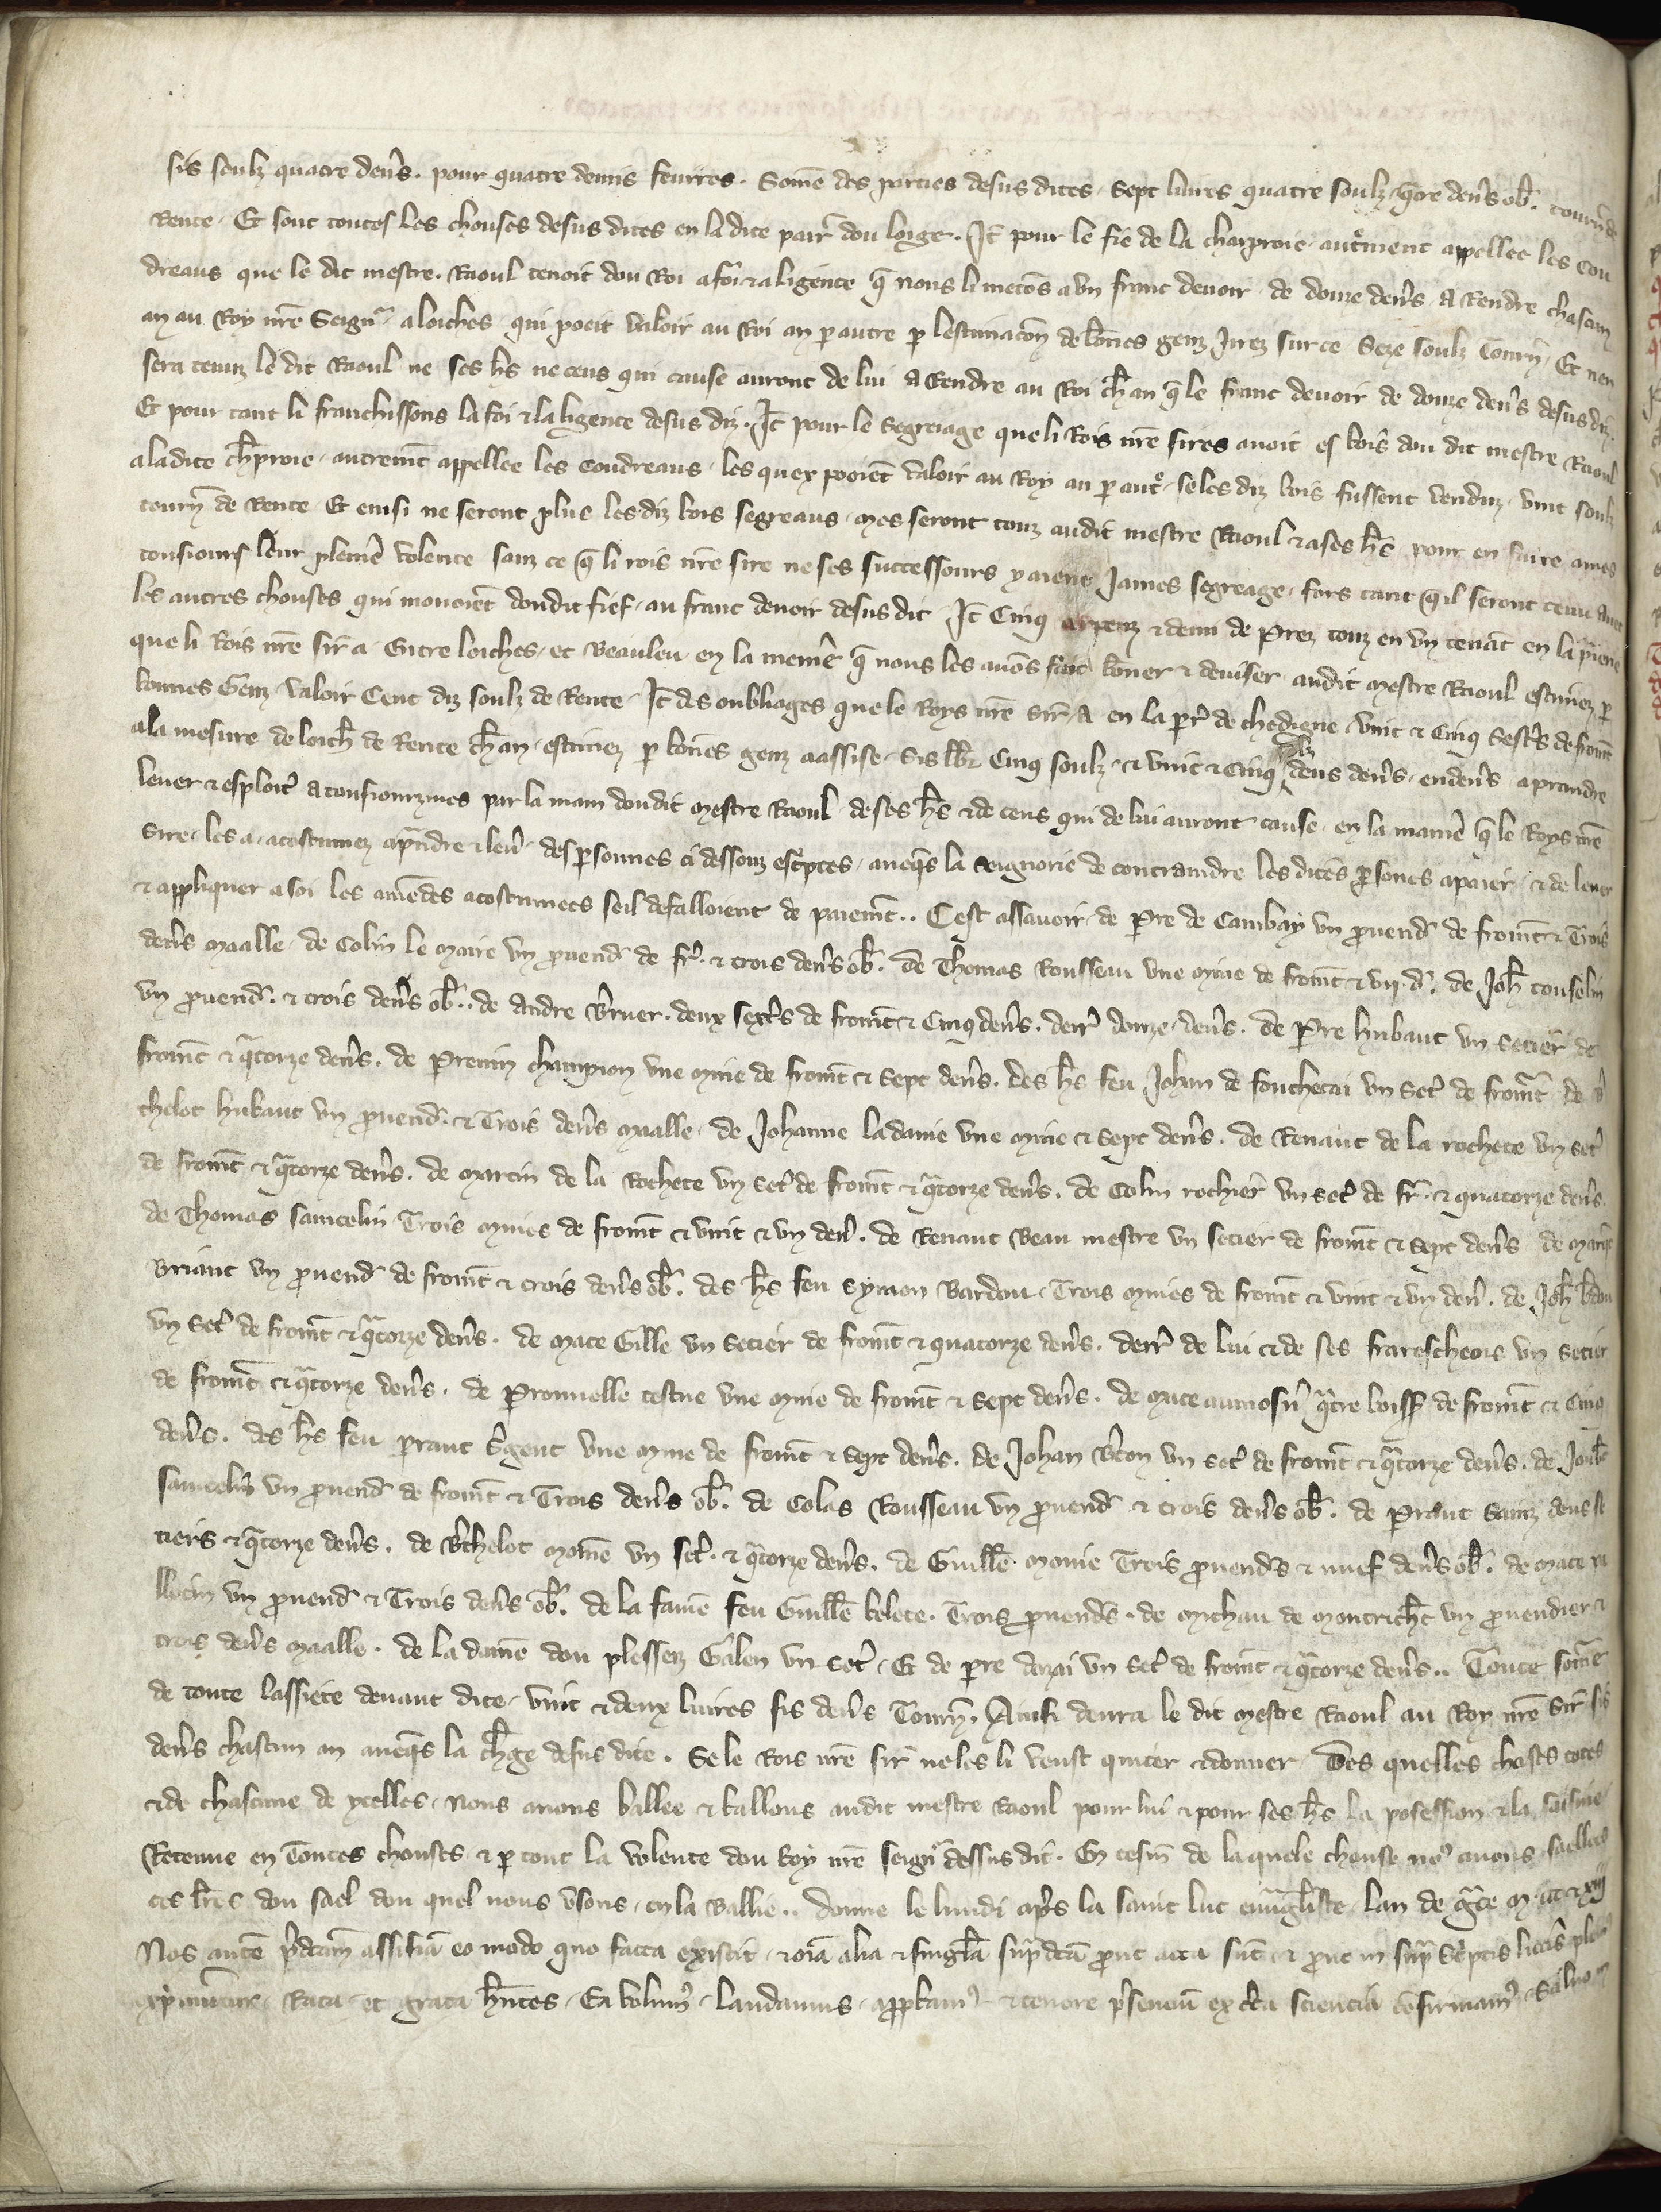 sis soulz quatre deñs. pour quatre demis feurres. Somẽ des parties desus dites. Sept liures quatre soulz qͣtre deñs ob̃. tourñ de
Rente. Et sont toutes les chouses desus dites en la dite pair̃ dou loige. It̃ pour le fie de la charproie autᵉment appellee les Cou
dreaus que le dit mestre Raoul tenoit dou Roi a foi ⁊ a ligence q̃ nous li metõs a vn franc deuoir de douze deñs a Rendre chascun
an au Roy nr̃e Seignʳ a loiches qui poeit valoir au Roi an p autre p lestimacõn de bõnes genz Jurez sur ce Seze soulz Tourñ. Et nen
sera tenuz le dit Raoul ne ses h̃s ne ceus qui cause auront de lui a Rendre au Roi ch̃ an q̃ le franc deuoir de douze deñs desus diz.
Et pour tant li franchissons la foi ⁊ la ligence desus diz. It̃ pour le Segreiage que li Rois nr̃e sires auoit es bois dou dit mestre Raoul
a la dite ch̃proie autremt̃ appellee les Coudreaus les quex pooiẽt valoir au Roy an p autᵉ se les diz bois fussent venduz vint soulz
tourñ de Rente Et einsi ne seront plus les diz bois segreaus mes seront touz au dit mestre Raoul ⁊ a ses h̃s pour en faire a mes
tousiours leur plenie volente sanz ce q̃ li rois nr̃e sire ne ses successours y aient James segreage fors tant q̃ il seront tenu auec
les autres chouses qui mouoiẽt dou dit fief au franc deuoir desus dit It̃ Cinq arpenz ⁊ demi de Prez touz en vn tenãt en la p̃rierie
que li Rois nr̃e sir̃ a Entre loiches et Beauleu en la menie͂r q̃ nous les auõs fait bõner ⁊ deuiser au dit mestre Raoul estimez p
bonnes Genz valoir Cent diz soulz de Rente. It̃ des oubliages que le Roys nr̃e sir̃ a en la pr̃ de chedigne vint ⁊ Cinq Sest̃s de fromt̃
a la mesure de loich̃ de Rente ch̃ an estimez p bõnes genz a assise. Sis lb̃r Cinq soulz ⁊ vint ⁊ Cinq solz deus deñs en deñs a prandre
leuer ⁊ esploit̃ a tousiourzmes par la main dou dit mestre Raoul de ses h̃s ⁊ de ceus qui de lui auront cause en la manie͂r q̃ le Roys nr̃e
Sire les a acostumez a p̃ndre ⁊ leu͂r des psonnes ci dessouz esc͂ptes aueq̃s la seignorie de contraindre les dites psones a paier ⁊ de leuer
⁊ appliquer a soi les amẽdes acostumees seil defalloient de paiemt̃.. Cest assauoir de Pr̃e de Cambay vn prouend̃ de fromt̃ ⁊ Trois
deñs maalle de Colin le Maire vn prouend̃ de fr̃. ⁊ trois deñs ob̃. de Thomas Rousseau vne mine de fromt̃ ⁊ vij. d̃. de Joh̃ touselin
vn prouend̃. ⁊ trois deñs ob̃.. de Andre V͂ruer. deux sext̃s de fromt̃ ⁊ Cinq deñs. derr̃ douze deñs. de Pr̃e hubaut vn setier de
fromt̃ ⁊ q̃torze deñs. de Prenin champion vne mine de fromt̃ ⁊ sept deñs. des h̃s feu Johan de fouchetai vn set̃ de fromt̃ de b͂
thelot hubaut vn prouend̃. ⁊ Trois deñs maalle. de Johanne la dame vne mine ⁊ sept deñs. de Renaut de la rochete vn set̃
de fromt̃ ⁊ q̃torze deñs. de Martin de la Rochete vn set̃ de fromt̃ ⁊ q̃torze deñs. de Colin rochier vn set̃ de fr̃. ⁊ quatorze deñs.
de Thomas samcelin Trois mines de fromt̃ ⁊ vint ⁊ vn deñ. de Renaut Beau mestre vn setier de fromt̃ ⁊ sept deñs de
Briant vn prouend̃ de fromt̃ ⁊ trois deñs ob̃. des h̃s feu Symon Bardou Trois mines de fromt̃ ⁊ vint ⁊ vn deñ. de Joh̃ b̃dou
vn set̃ de fromt̃ ⁊ q̃torze deñs. de Mace Gille vn setier de fromt̃ ⁊ quatorze deñs. derr̃ de lui ⁊ de ses frarescheors vn setier
de fromt̃ ⁊ q̃torze deñs. de Pronnelle testue vne mine de fromt̃ ⁊ sept deñs. de Mace aumosñ q̃tre boiss̃ de fromt̃ ⁊ Cinq
deñs. des h̃s feu praut S͂gent vne mine de fromt̃ ⁊ sept deñs. de Johan B͂ton vn set̃ de fromt̃ ⁊ q̃torze deñs. de
samcelin vn prouend̃ de fromt̃ ⁊ Trois deñs ob̃. de Colas Rousseau vn prouend̃ ⁊ trois deñs ob̃. de Praut Sainz deus se
tiers ⁊ q̃torze deñs. de B͂thelot Moine vn set̃. ⁊ q̃torze deñs. de Guill̃e Moine Trois prouend̃s ⁊ nuef deñs ob̃. de Mace ra
llocin vn prouend̃ ⁊ Trois deñs ob̃. de la famẽ feu Guill̃e belete. Trois prouend̃s. de Michau de Montrich̃t vn prouendier ⁊
trois deñs maalle. de la damẽ dou plesseiz Galen vn set̃. Et de pr̃e dazai vn set̃ de fromt̃ ⁊ q̃torze deñs.. Toute som̃e
de toute lassiete deuant dite vint ⁊ deux liures sis deñs Tourñ. Ainsi deura le dit Mestre Raoul au Roy nr̃e sir̃ sis
deñs chascun an aueq̃s la ch̃ge desus dite. Se le Rois nr̃e sir̃ ne les li veust quiter ⁊ donner Des quelles choses totes
⁊ de chascune de ycelles nous auons ballee ⁊ ballons au dit mestre Raoul pour lui ⁊ pour ses h̃s la possession ⁊ la saisine
Retenue en Toutes chouses ⁊ p tout la volente dou Roy nr̃e seignʳ dessus dit. En tesm̃ de laquele chouse noꝰ auons saellees
ces lr̃es dou sael dou quel nous vsons en la Ballie.. Donne le lundi ap̃s la saint luc euuãgliste lan de gr̃ce
Nos autẽ p̃dc̃am assisiã eo modo quo facta existit ⁊ oĩa alia ⁊ singl̃a sup̃dc̃a prout acta sũt ⁊ prout in sup̃ sc͂ptis litt̃is pleniꝰ
exp̃mũtur Rata et grata h̃ntes Ea volumꝰ Laudamus appbamꝰ ⁊ tenore p̃senciũ ex c͂ta sciencia cõfirmamꝰ Saluo